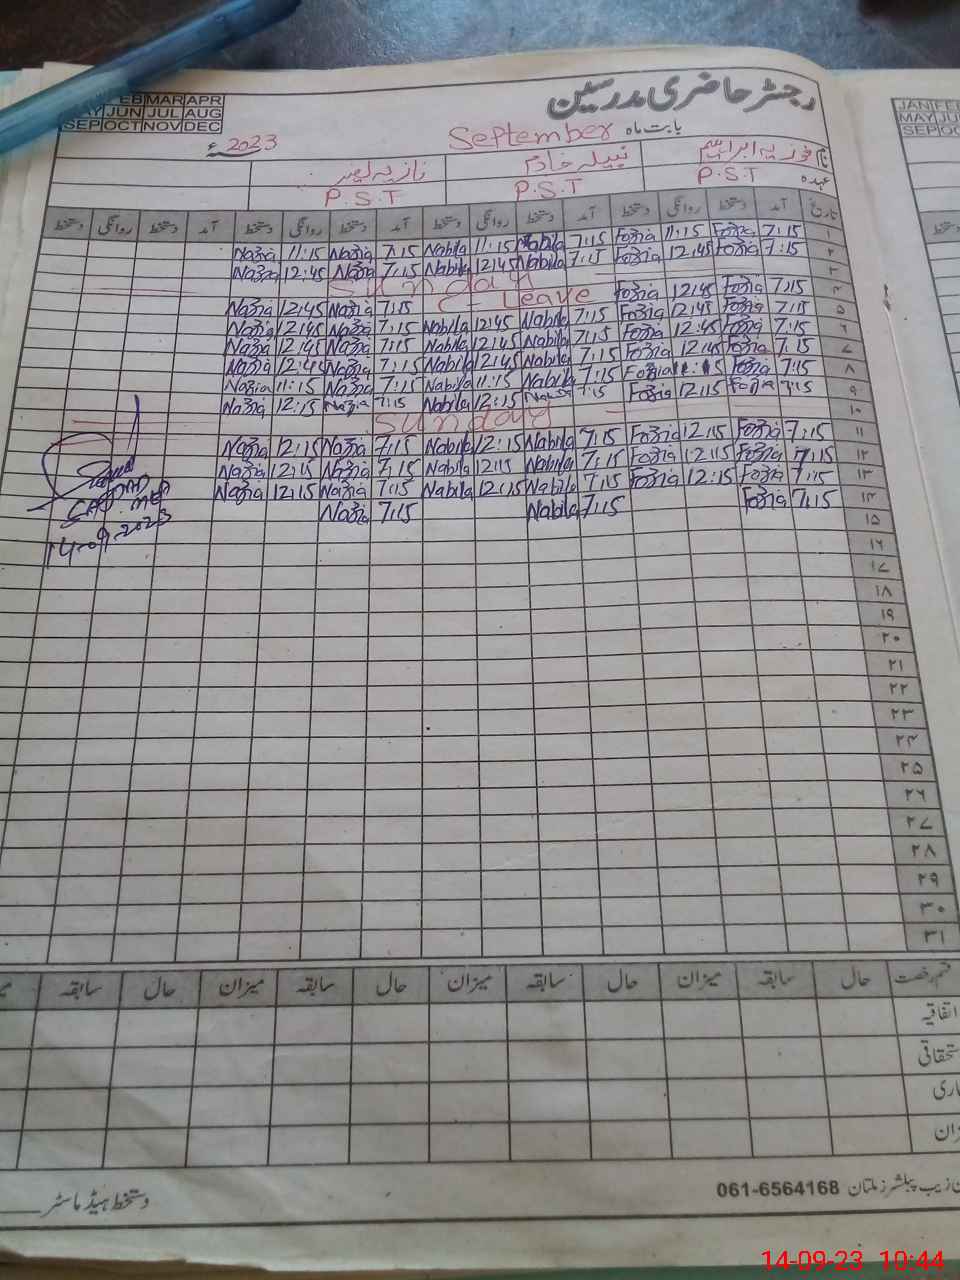 رجسٹر حاضری مدرسین
FEB MAR APR
JUN JUL AUG
SEP OCT NOV DEC
بابت ماہ September 2023ء
نام فوزیہ ابراہیم نبیلہ خادم نازیہ
عہدہ P.S.T P.S.T P.S.T
تاریخ آمد دستخط روانگی دستخط آمد دستخط روانگی دستخط آمد دستخط روانگی دستخط آمد دستخط روانگی دستخط
۱ 7:15 Fozia 11:15 Fozia 7:15 Nabila 11:15 Nabila 7:15 Nazia 11:15 Nazia
۲ 7:15 Fozia 12:45 Fozia 7:15 Nabila 12:45 Nabila 7:15 Nazia 12:45 Nazia
۳ Sunday
۴ 7:15 Fozia 12:45 Fozia C - Leave 7:15 Nazia 12:45 Nazia
۵ 7:15 Fozia 12:45 Fozia 7:15 Nabila 12:45 Nabila 7:15 Nazia 12:45 Nazia
۶ 7:15 Fozia 12:45 Fozia 7:15 Nabila 12:45 Nabila 7:15 Nazia 12:45 Nazia
۷ 7:15 Fozia 12:45 Fozia 7:15 Nabila 12:45 Nabila 7:15 Nazia 12:45 Nazia
۸ 7:15 Fozia 11:15 Fozia 7:15 Nabila 11:15 Nabila 7:15 Nazia 11:15 Nazia
۹ 7:15 Fozia 12:15 Fozia 7:15 Nabila 12:15 Nabila 7:15 Nazia 12:15 Nazia
۱۰ Sunday
۱۱ 7:15 Fozia 12:15 Fozia 7:15 Nabila 12:15 Nabila 7:15 Nazia 12:15 Nazia
۱۲ 7:15 Fozia 12:15 Fozia 7:15 Nabila 12:15 Nabila 7:15 Nazia 12:15 Nazia
۱۳ 7:15 Fozia 12:15 Fozia 7:15 Nabila 12:15 Nabila 7:15 Nazia 12:15 Nazia
۱۴ 7:15 Fozia 7:15 Nabila 7:15 Nazia
14-09-2023
۱۵
۱۶
۱۷
۱۸
۱۹
۲۰
۲۱
۲۲
۲۳
۲۴
۲۵
۲۶
۲۷
۲۸
۲۹
۳۰
۳۱
قسم رخصت حال سابقہ میزان حال سابقہ میزان حال سابقہ میزان حال سابقہ
اتفاقیہ
061-6564168 زیب پبلشرز ملتان
دستخط ہیڈ ماسٹر
JAN FEB
MAY JU
SEP OC
14-09-23 10:44